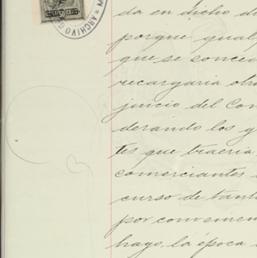 ARCHIVO
da en dicho d
porque qual
que se conced
recargaria otr
juicio del Con
derando los g
tes que traeria
comerciantes
curso de tant
por convenien
hago, la época